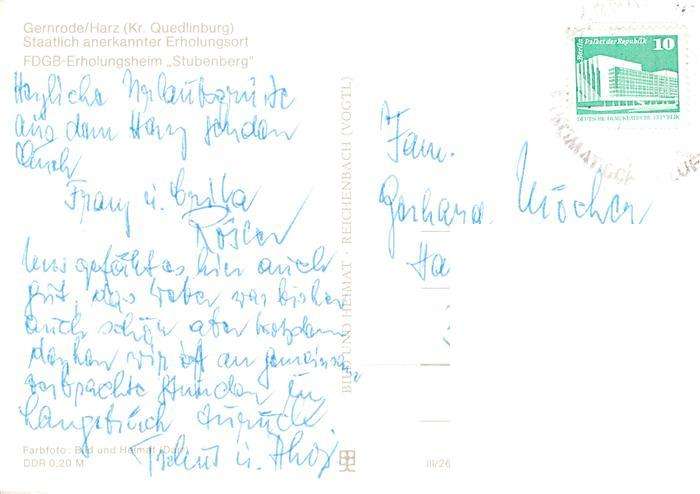 Gernrode/Harz (Kr. Quedlinburg)
Staatlich anerkannter Erholungsort
FDGB-Erholungsheim „Stubenberg"
Herzliche Urlaubsgrüße
aus dem Harz senden
Euch
Franz u. Erika
Röscer
Uns gefällt es hier auch
gut, das Wetter war bisher
auch schön aber trotzdem
denken wir oft an gemeinsam
verbrachte Stunden in
zurück.
Tschüs u. Ahoj
Farbfoto: Bild und Heimat
DDR 0,20 M
BILD UND HEIMAT · REICHENBACH (VOGTL)
III/26
Berlin Palast der Republik
10
DEUTSCHE DEMOKRATISCHE REPUBLIK
Fam.
Gerhard